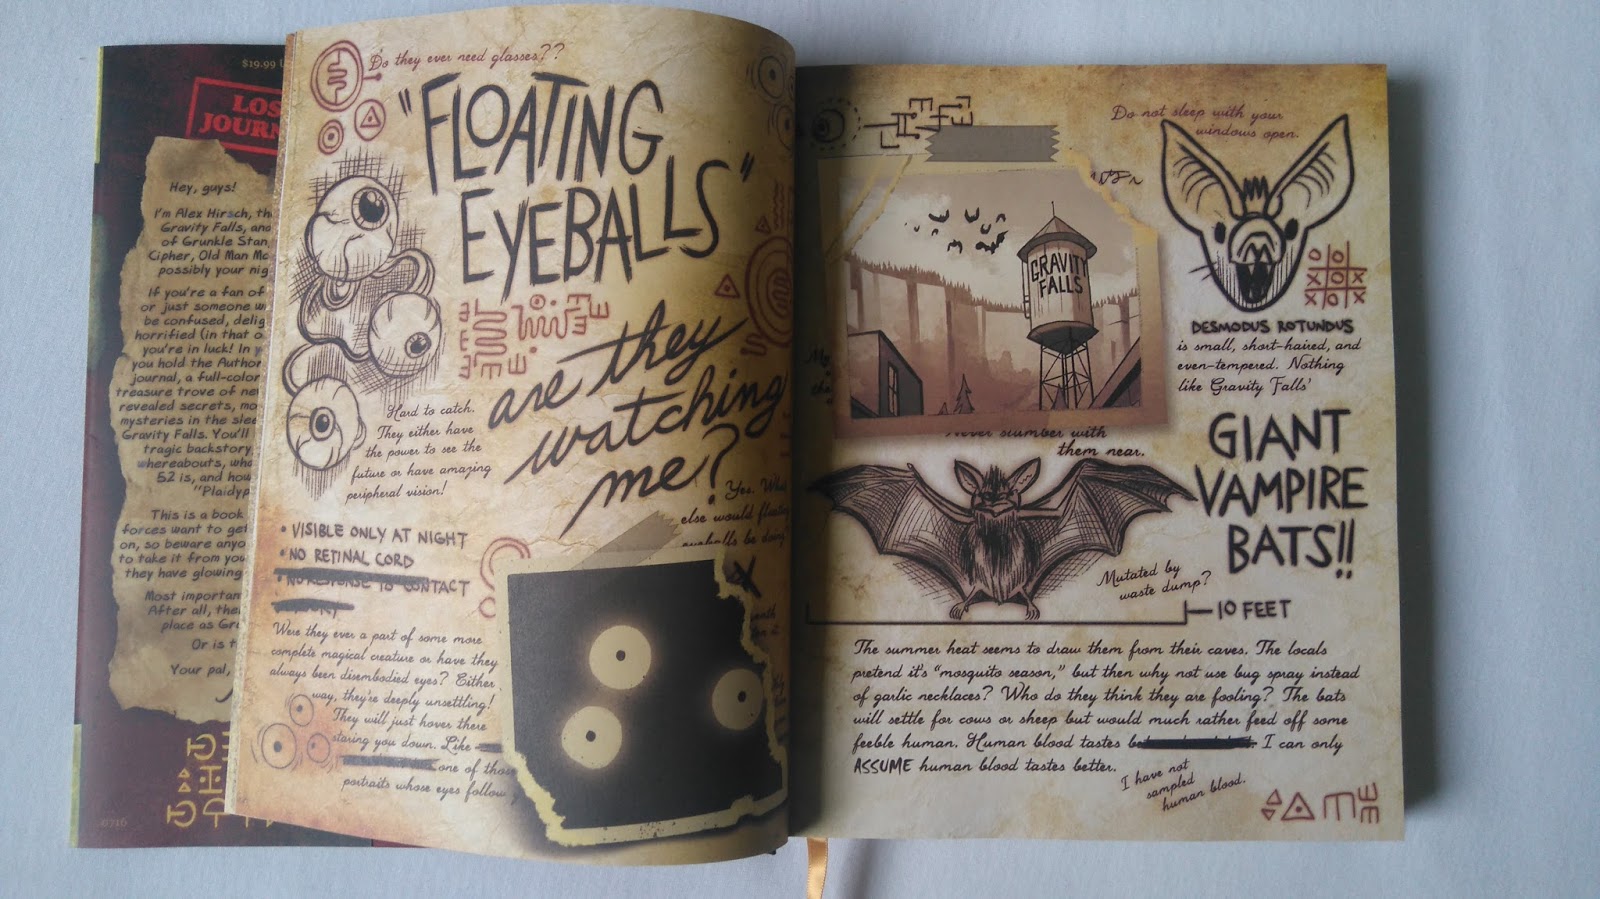 $19.99
LOS
JOURN
Hey, guys!
I'm Alex Hirsch, th
Gravity Falls, and
of Grunkle Stan,
Cipher, Old Man Mc
possibly your nig
If you're a fan of
or just someone w
be confused, delig
horrified (in that o
you're in luck! In y
you hold the Author
journal, a full-color
treasure trove of new
revealed secrets, mo
mysteries in the slee
Gravity Falls. You'll
tragic backstory
whereabouts, wha
52 is, and how
"Plaidyp
This is a book
forces want to get
on, so beware anyo
to take it from you
they have glowing
Most importan
After all, the
place as Gra
Or is t
Your pal,
Do they ever need glasses??
"FLOATING
EYEBALLS"
are they
watching
me?
Hard to catch.
They either have
the power to see the
future or have amazing
peripheral vision!
Yes. What
else would floating
eyeballs be doing
• VISIBLE ONLY AT NIGHT
• NO RETINAL CORD
• NO RESPONSE TO CONTACT
Were they ever a part of some more
complete magical creature or have they
always been disembodied eyes? Either
way, they're deeply unsettling!
They will just hover there
staring you down. Like
one of those
portraits whose eyes follow
Do not sleep with your
windows open.
GRAVITY
FALLS
O O
X O X
X O X
DESMODUS ROTUNDUS
is small, short-haired, and
even-tempered. Nothing
like Gravity Falls'
GIANT
VAMPIRE
BATS!!
Never slumber with
them near.
Mutated by
waste dump?
10 FEET
The summer heat seems to draw them from their caves. The locals
pretend it's "mosquito season," but then why not use bug spray instead
of garlic necklaces? Who do they think they are fooling? The bats
will settle for cows or sheep but would much rather feed off some
feeble human. Human blood tastes I can only
ASSUME human blood tastes better.
I have not
sampled
human blood.